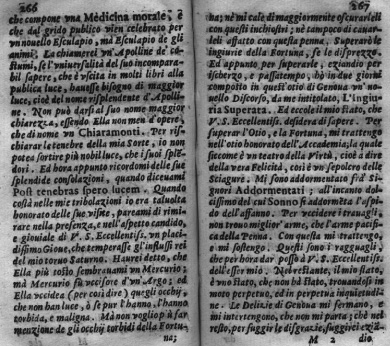 266
che compone vna Medicina morale, è
che dal grido publico vien celebrato per
vn nouello Esculapio, ma Esculapio de gli
animi. La chiamerei vn' Apolline de' co-
stumi, se l'vniuersità del suo incompara-
bil sapere, che è vscita in molti libri alla
publica luce, hauesse bisogno di maggior
luce, cioè del nome risplendente d'Apolli-
ne. Non può darsi al suo nome maggior
chiarezza, esso. Ella non men d'opere,
che di nome vn Chiaramonti. Per ri-
schiarar le tenebre della mia Sorte, io non
potea sortire più nobil luce, che i suoi splé-
dori. Ed hora appunto ricordomi delle sue
splendide consolationi, quando diceuami
Post tenebras spero lucem. Quando
costà nelle mie tribolationi io era taluolta
honorato delle sue visite, pareami di rimi-
rare nella presenza, e nell'aspetto candido,
e giouiale di V. S. Eccellentiss. vn placi-
dissimo Gioue, che temperasse gl'influssi rei
del mio toruo Saturno. Haurei detto, che
Ella più tosto sembrauami vn Mercurio;
ma Mercurio fù vccisore d'vn' Argo; ed
Ella vccidea (per così dire) quegli occhi,
che non han luce, ò se pur l'hanno, l'hanno
torbida, e maligna. Mà non vogliò quì far
menzione de gli occhi torbidi della Fortu-
na;
267
na; nè mi cale di maggiormente oscurarli
con questi inchiostri; nè tampoco di cancel-
larli affatto con questa penna. Superarò l'in-
giurie della Fortuna, se le disprezzo.
Ed appunto per superarle, eziandio per
ischerzo, e passatempo, hò in due giorni
composto in quest'otio di Genoua vn' no-
uello Discorso, da me intitolato, L'Ingiu-
ria Superata. Ed eccole il mio stato, che
V. S. Eccellentiss. desidera di sapere. Per
superar l'Otio, e la Fortuna, mi trattengo
nell'otio honorato dell'Accademia, la quale
siccome è vn teatro della Virtù, cioè à dire
della vera Felicità, così è vn sepolcro delle
Sciagure. Mi sono addormentato frà Si-
gnori Addormentati; all'incanto dol-
cissimo del cui Sonno si addormèta l'aspi-
do dell'affanno. Per vccidere i trauagli,
non trouo miglior' arme, che l'arme pacifi-
ca della Penna. Con questa mi trattengo,
e mi sostengo. Questi sono i ragguagli,
che per hora dar posso à V. S. Eccellentiss.
dell'esser mio. Nel restante, il mio stato,
è vno stato, che non hà stato, trouandosi in
moto perpetuo, ed in perpetua inquietudi-
ne. Le Delizie di Genoua mi fermano, e
mi intertengono quì in parte; mà; chè nel
resto, per fuggir le disgrazie, suggei e
M 2 dio